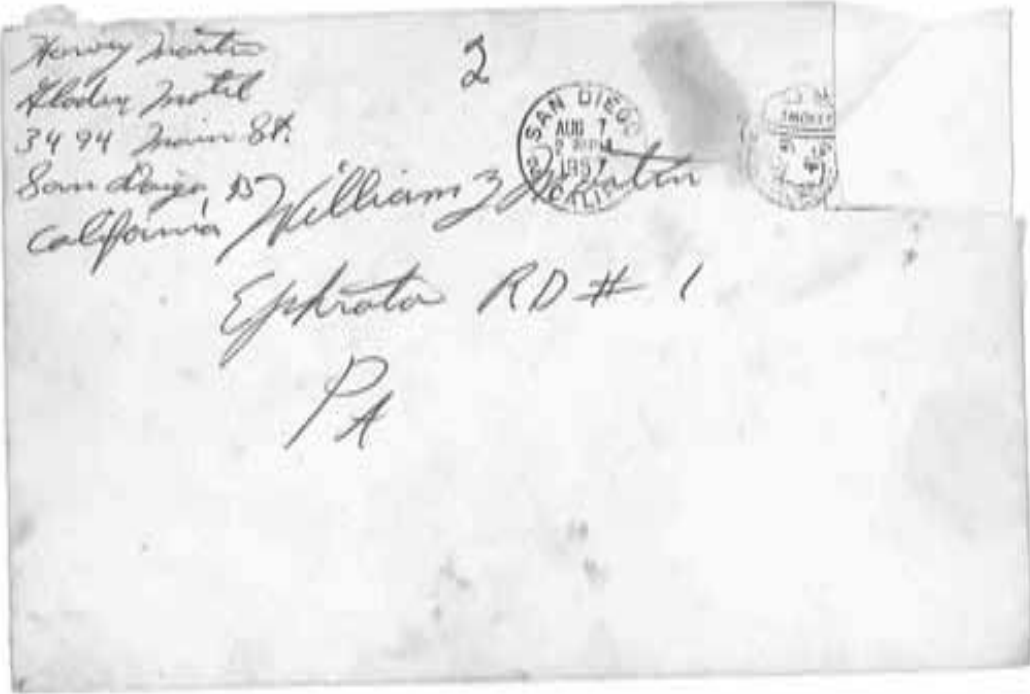 Harvey Martin
Motel
3494 Main St.
San Diego 13
California
2
SAN DIEGO
AUG 7
2 PM
1957
CALIF.
William Z Martin
Ephrata RD # 1
PA